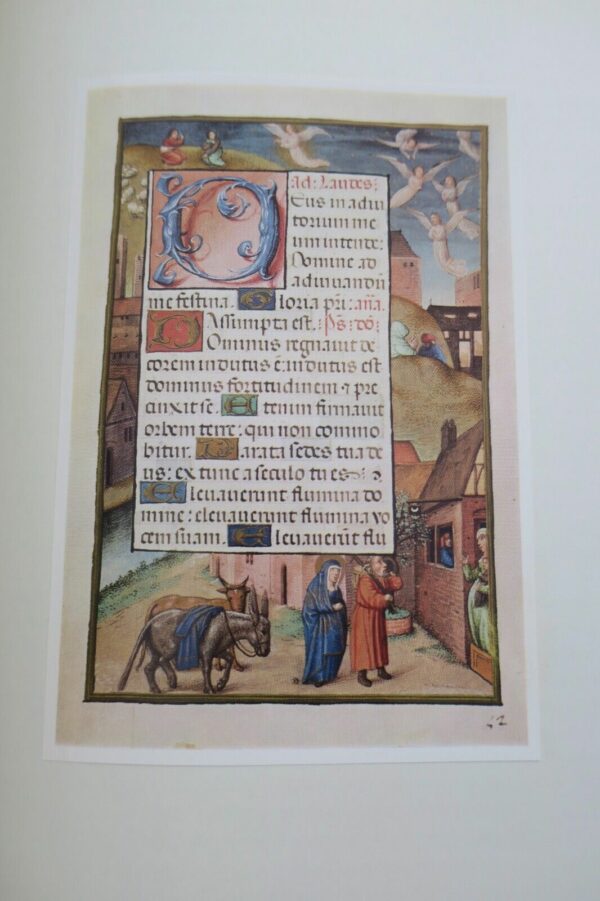 ad: Laudes:
Deus in adiu
torium me
um intende:
Domine ad
adiuvandū
me festina. Gloria pri: aña.
Assumpta est. Ps: dō:
Dominus regnavit de
corem indutus ē: indutus est
dominus fortitudinem ⁊ pre
cinxit se. Etenim firmavit
orbem terre: qui non commo
bitur. Parata sedes tua de
us: ex tunc a seculo tu es:
Elevaverunt flumina do
mine: elevaverunt flumina vo
cem suam. Elevaverūt flu